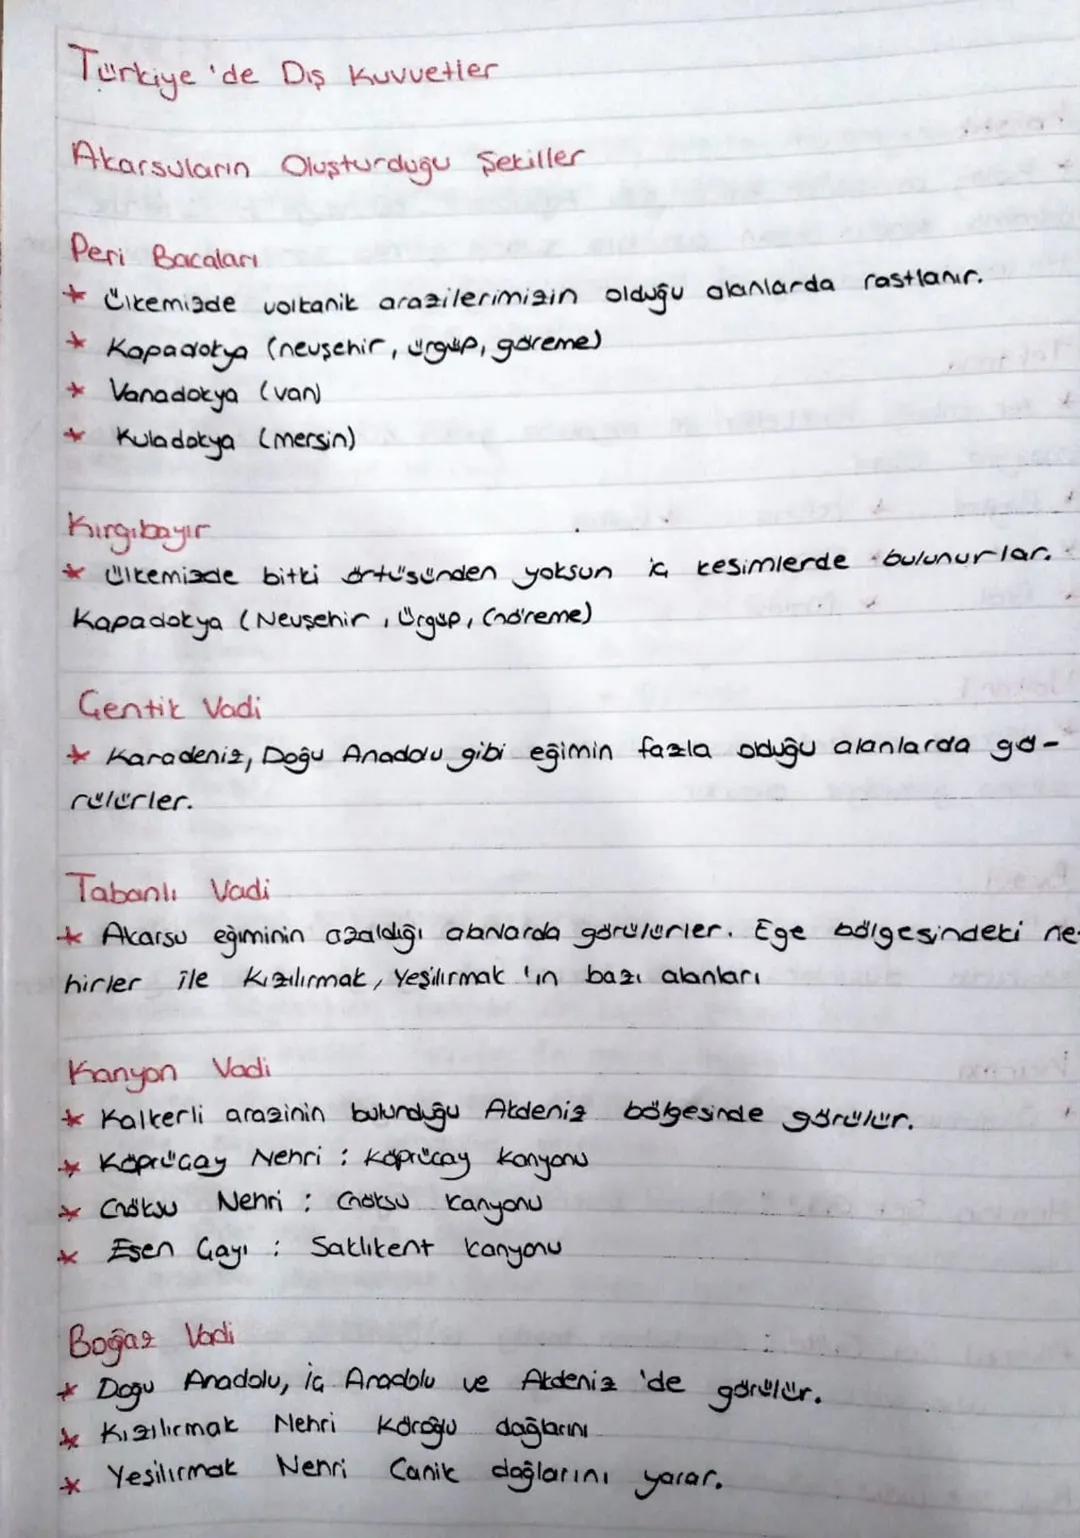 Türkiye 'de Dış Kuvvetler
Akarsuların Oluşturduğu Şekiller
Peri Bacaları
* Ülkemizde volkanik arazilerimizin olduğu alanlarda rastlanır.
* Kapadokya (nevşehir, ürgüp, göreme)
* Vanadokya (van)
* Kuladokya (mersin)
Kırgıbayır
* Ülkemizde bitki örtüsünden yoksun iç kesimlerde bulunurlar.
Kapadokya (Nevşehir, Ürgüp, Göreme)
Çentik Vadi
* Karadeniz, Doğu Anadolu gibi eğimin fazla olduğu alanlarda gö-
rülürler.
Tabanlı Vadi
* Akarsu eğiminin azaldığı alanlarda görülürler. Ege bölgesindeki ne-
hirler ile Kızılırmak, Yeşilırmak 'ın bazı alanları
Kanyon Vadi
* Kalkerli arazinin bulunduğu Akdeniz bölgesinde görülür.
* Köprüçay Nehri : Köprüçay Kanyonu
* Göksu Nehri : Göksu Kanyonu
* Eşen Çayı : Saklıkent Kanyonu
Boğaz Vadi
* Doğu Anadolu, iç Anadolu ve Akdeniz 'de görülür.
* Kızılırmak Nehri Köroğlu dağlarını
* Yeşilırmak Nehri Canik dağlarını yarar.